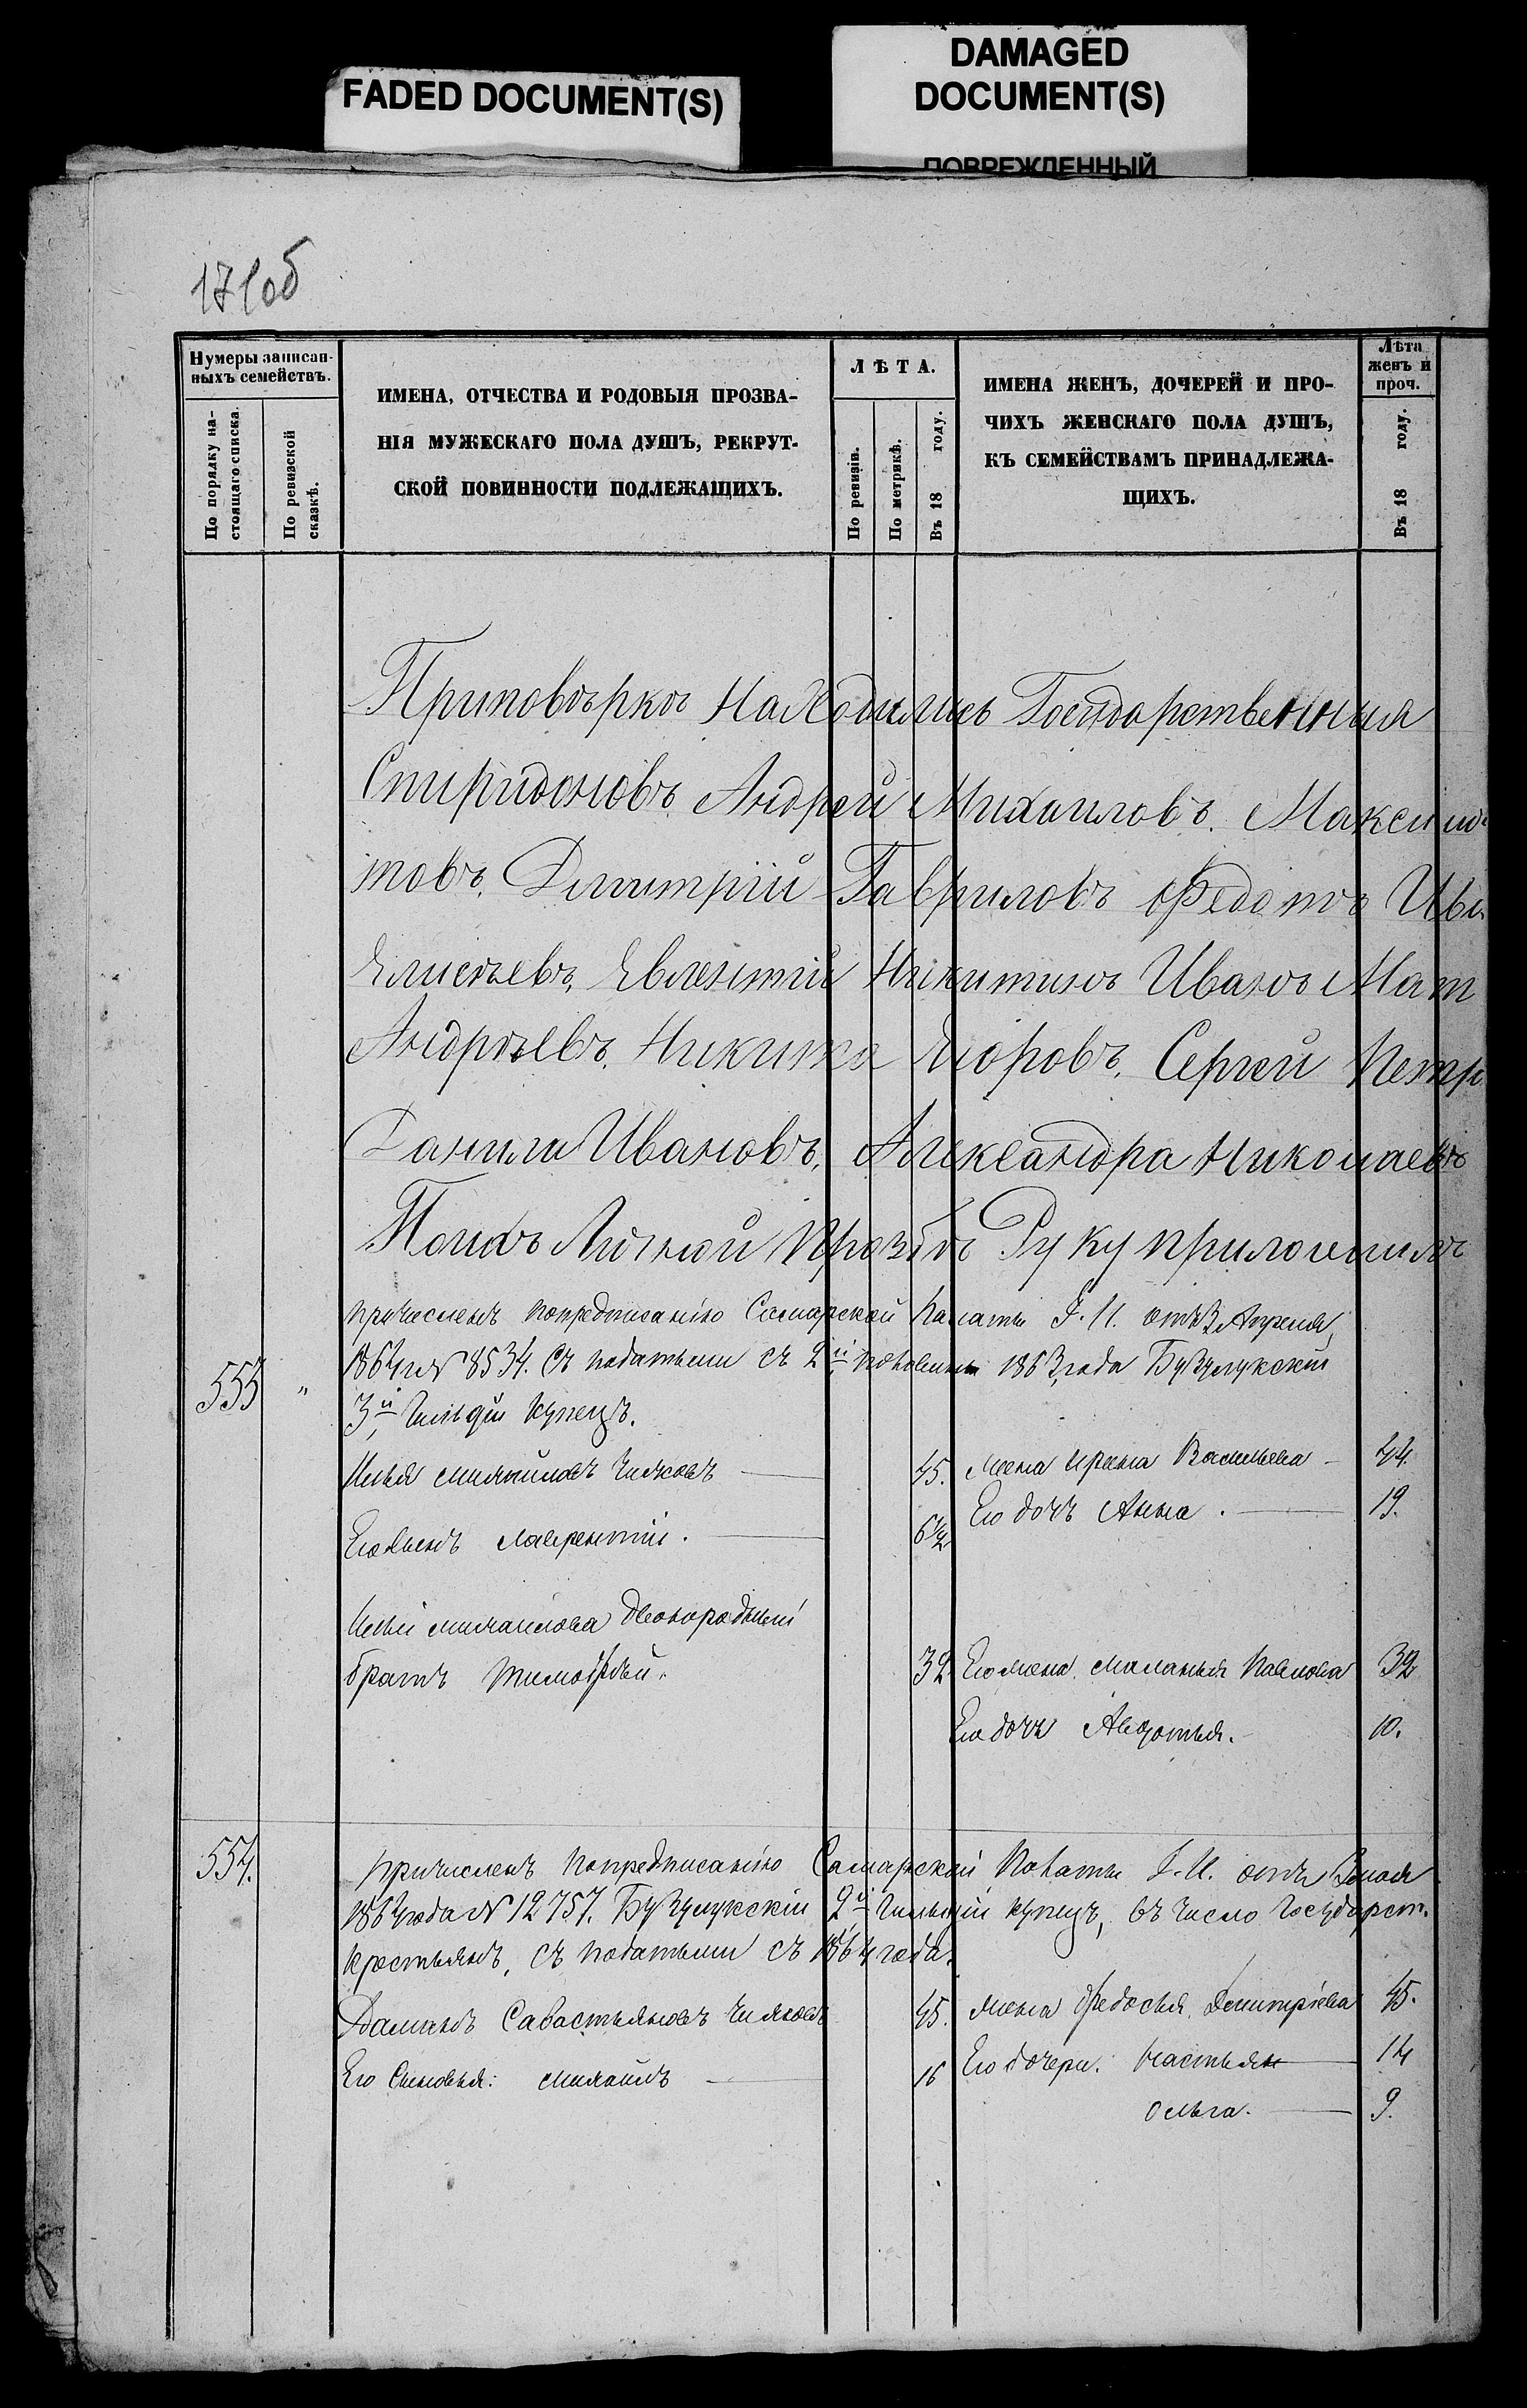 FADED DOCUMENT(S)
DAMAGED
DOCUMENT(S)
ПОВРЕЖДЕННЫЙ
171об
Нумеры записан-
ныхъ семействъ.
По порядку на-
стоящаго списка.
По ревизской
сказкѣ.
ИМЕНА, ОТЧЕСТВА И РОДОВЫЯ ПРОЗВА-
НІЯ МУЖЕСКАГО ПОЛА ДУШЪ, РЕКРУТ-
СКОЙ ПОВИННОСТИ ПОДЛЕЖАЩИХЪ.
ЛѢТА.
По ревизіи.
По метрикѣ.
Въ 18 году.
ИМЕНА ЖЕНЪ, ДОЧЕРЕЙ И ПРО-
ЧИХЪ ЖЕНСКАГО ПОЛА ДУШЪ,
КЪ СЕМЕЙСТВАМЪ ПРИНАДЛЕЖА-
ЩИХЪ.
Лѣта
женъ и
проч.
Въ 18 году.
Приповѣркѣ Находились Государственныя
Спиридоновъ, Андрей Михаиловъ. Максим
товъ, Дмитрій Гавриловъ Федотъ Ива
Елисѣевъ, Евлентій Никитинъ Иванъ Мат
Андрѣевъ, Никита Егоровъ, Сергей Петр
Данила Ивановъ, Александра Николаевъ
Руку приложилъ
Причисленъ попредписанію Самарской Палаты Г. И. отъ 3 Апреля
1864 г № 8534. Съ податьми съ 2й половины 1863 года Бузулукскій
553 "
3й Гильдіи Купецъ.
Илья Михайловъ Чиляковъ 45. Жена Ирина Васильева 44.
Его дочь Анна. 19.
Его сынъ Лаврентій. 6½
Ильи Михайлова Двоюродный
братъ Тимофей. 32 Его жена Маланья Павлова 32
Его дочь Авдотья. 10.
554. Причисленъ попредписанію Самарской Палаты Г. И. отъ
1864 года № 12757. Бузулукскій 2й Гильдіи купецъ, въ число Государст.
крестьянъ, съ податьми съ 1864 года.
Саваcтьяновъ 45. Жена Федосья Дмитріева 45.
Его Сыновья: Михаилъ 16 Его дочери: Настасья 14
Ольга. 9.